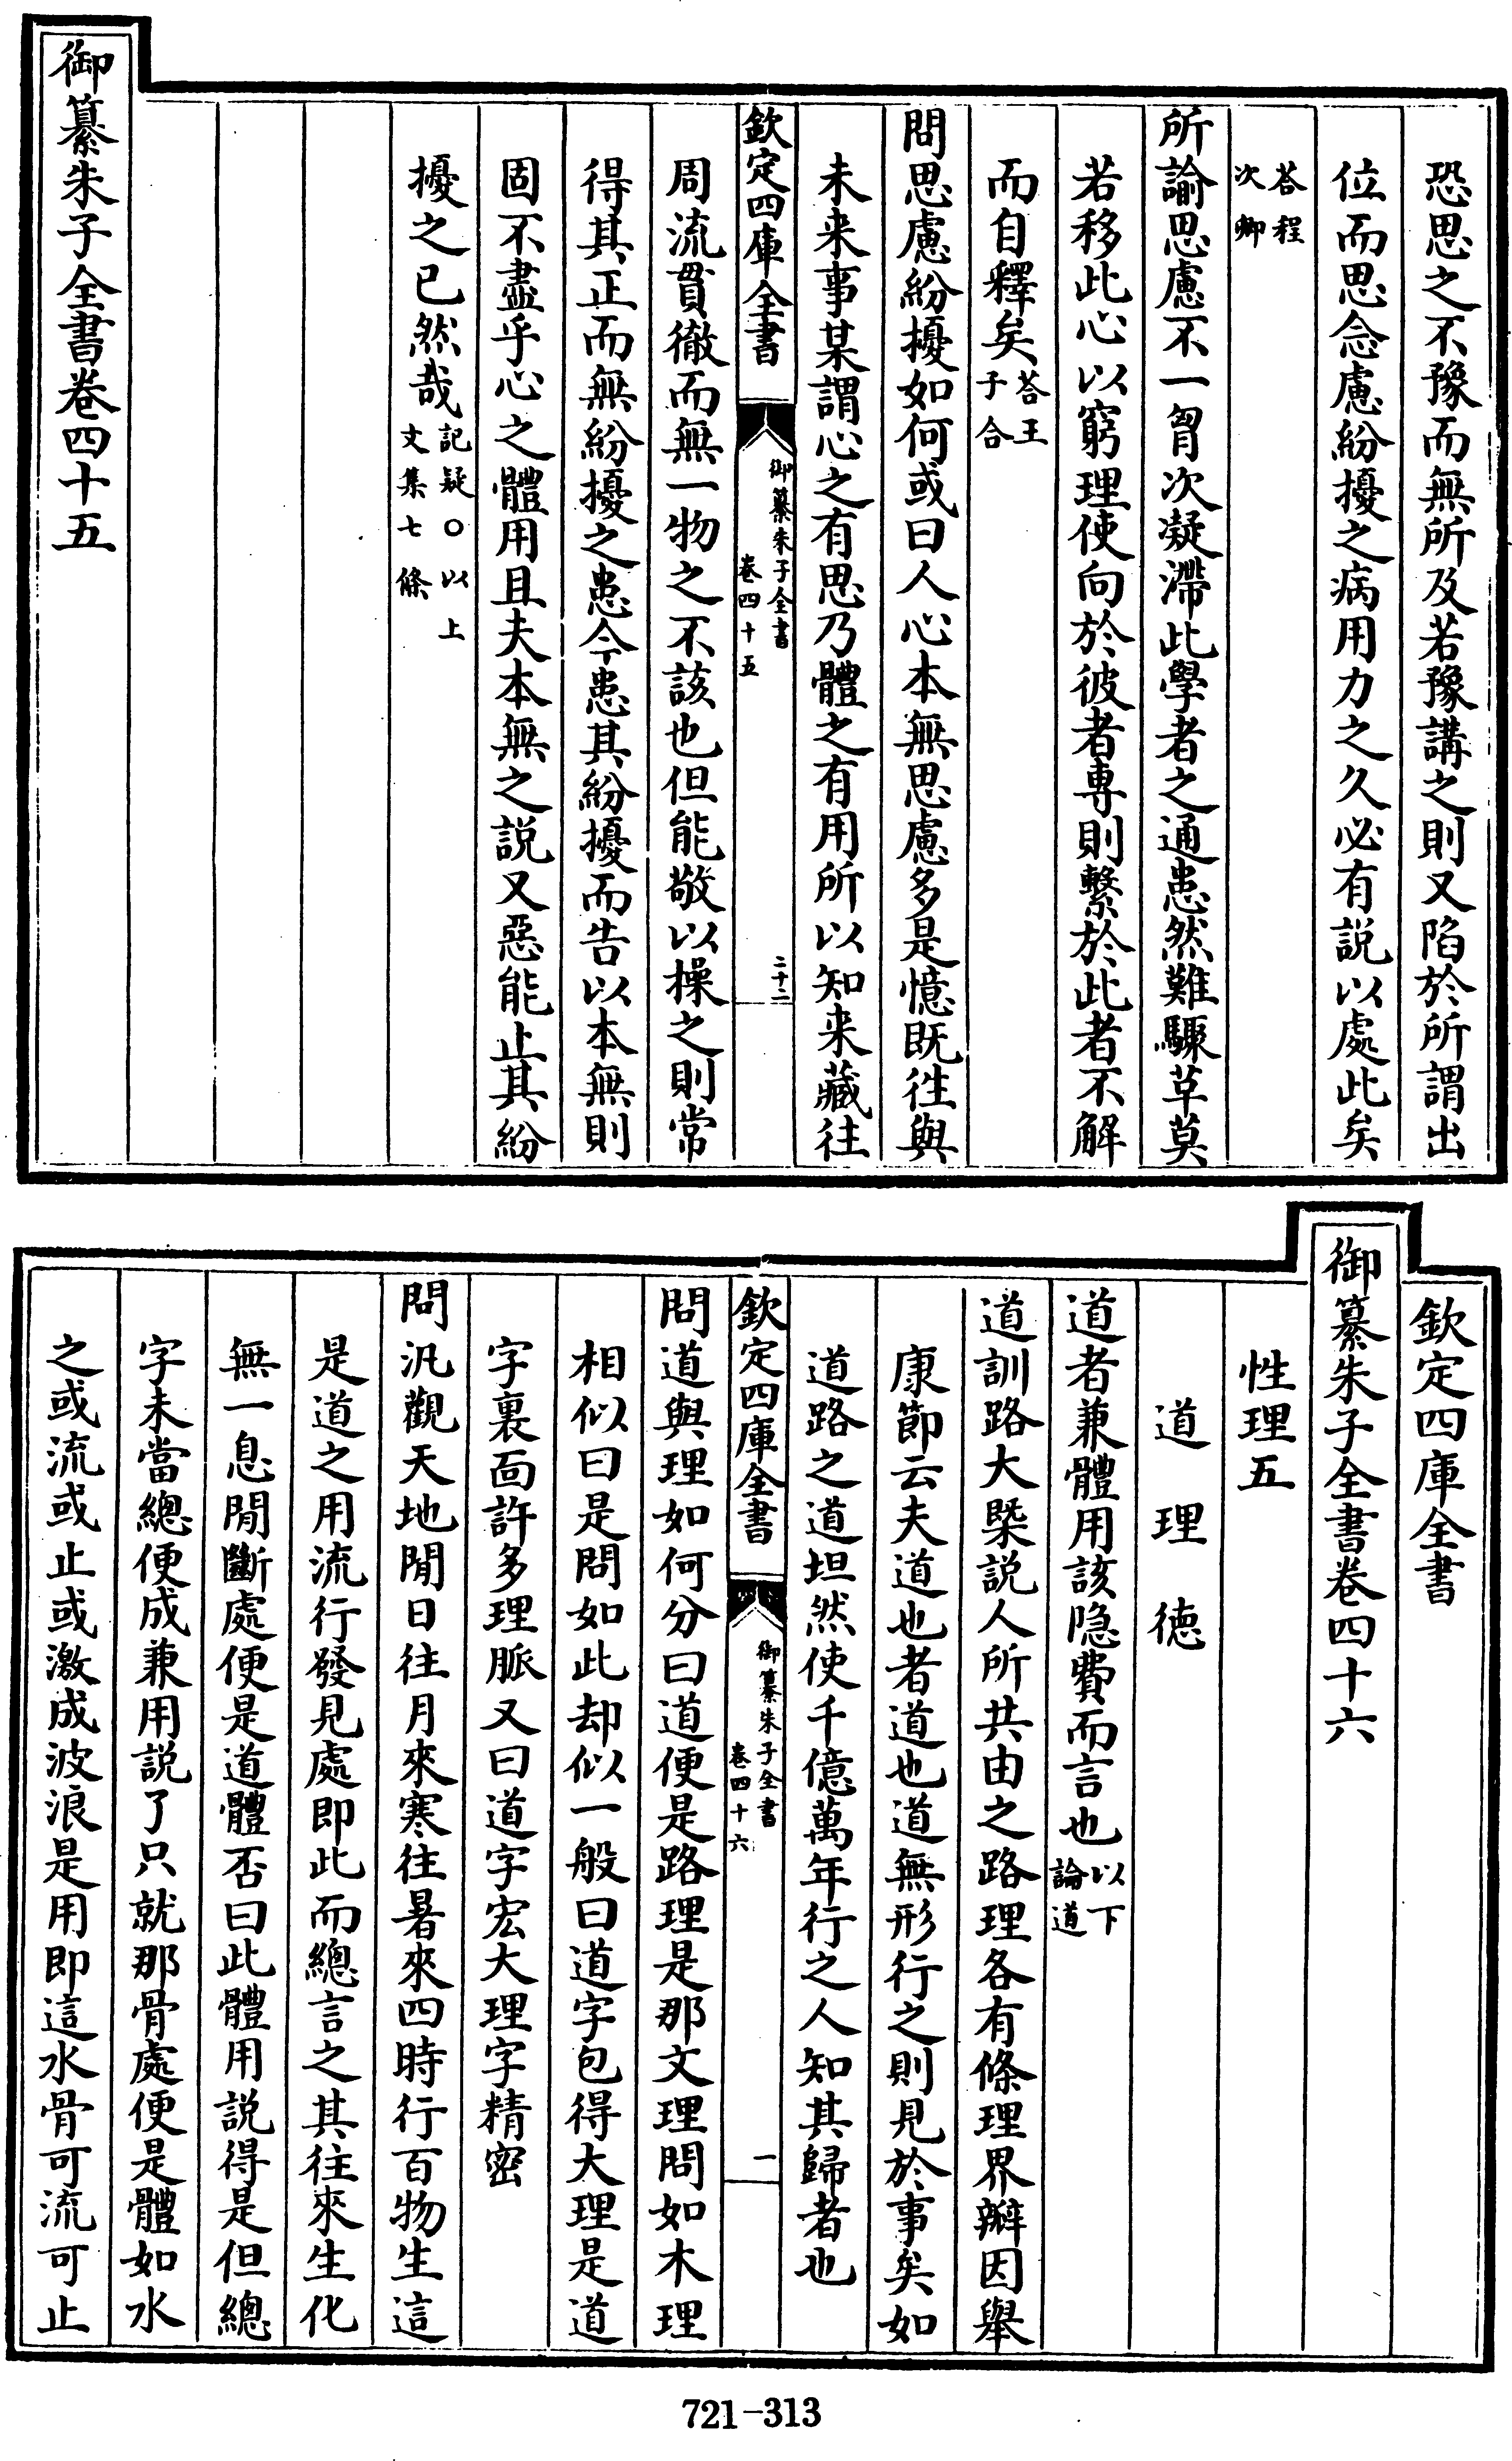 恐思之不豫而無所及若豫講之則又陷於所謂出
位而思念慮紛擾之病用力之久必有説以處此矣
荅程
次卿
所諭思慮不一胷次凝滯此學者之通患然難驟革莫
若移此心以窮理使向於彼者專則繫於此者不解
而自釋矣荅王
子合
問思慮紛擾如何或曰人心本無思慮多是憶既徃與
未來事某謂心之有思乃體之有用所以知来藏往
欽定四庫全書
御纂朱子全書
卷四十五
二十二
周流貫徹而無一物之不該也但能敬以操之則常
得其正而無紛擾之患今患其紛擾而告以本無則
固不盡乎心之體用且夫本無之説又惡能止其紛
擾之已然哉記疑○以上
文集七條
御纂朱子全書卷四十五
欽定四庫全書
御纂朱子全書卷四十六
性理五
道 理 徳
道者兼體用該隐費而言也以下
論道
道訓路大槩説人所共由之路理各有條理界辦因舉
康節云夫道也者道也道無形行之則見於事矣如
道路之道坦然使千億萬年行之人知其歸者也
欽定四庫全書
御纂朱子全書
卷四十六
一
問道與理如何分曰道便是路理是那文理問如木理
相似曰是問如此却似一般曰道字包得大理是道
字裏面許多理脈又曰道字宏大理字精密
問汎觀天地閒日往月來寒往暑來四時行百物生這
是道之用流行發見處即此而總言之其往來生化
無一息閒斷處便是道體否曰此體用説得是但總
字未當總便成兼用説了只就那骨處便是體如水
之或流或止或激成波浪是用即這水骨可流可止
721-313